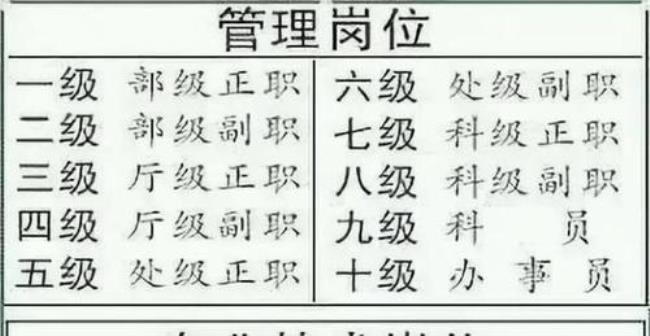 管理岗位
一级 部级正职
二级 部级副职
三级 厅级正职
四级 厅级副职
五级 处级正职
六级 处级副职
七级 科级正职
八级 科级副职
九级 科员
十级 办事员